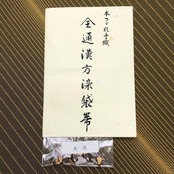 本つづれ手織
全通漢方染袋帯